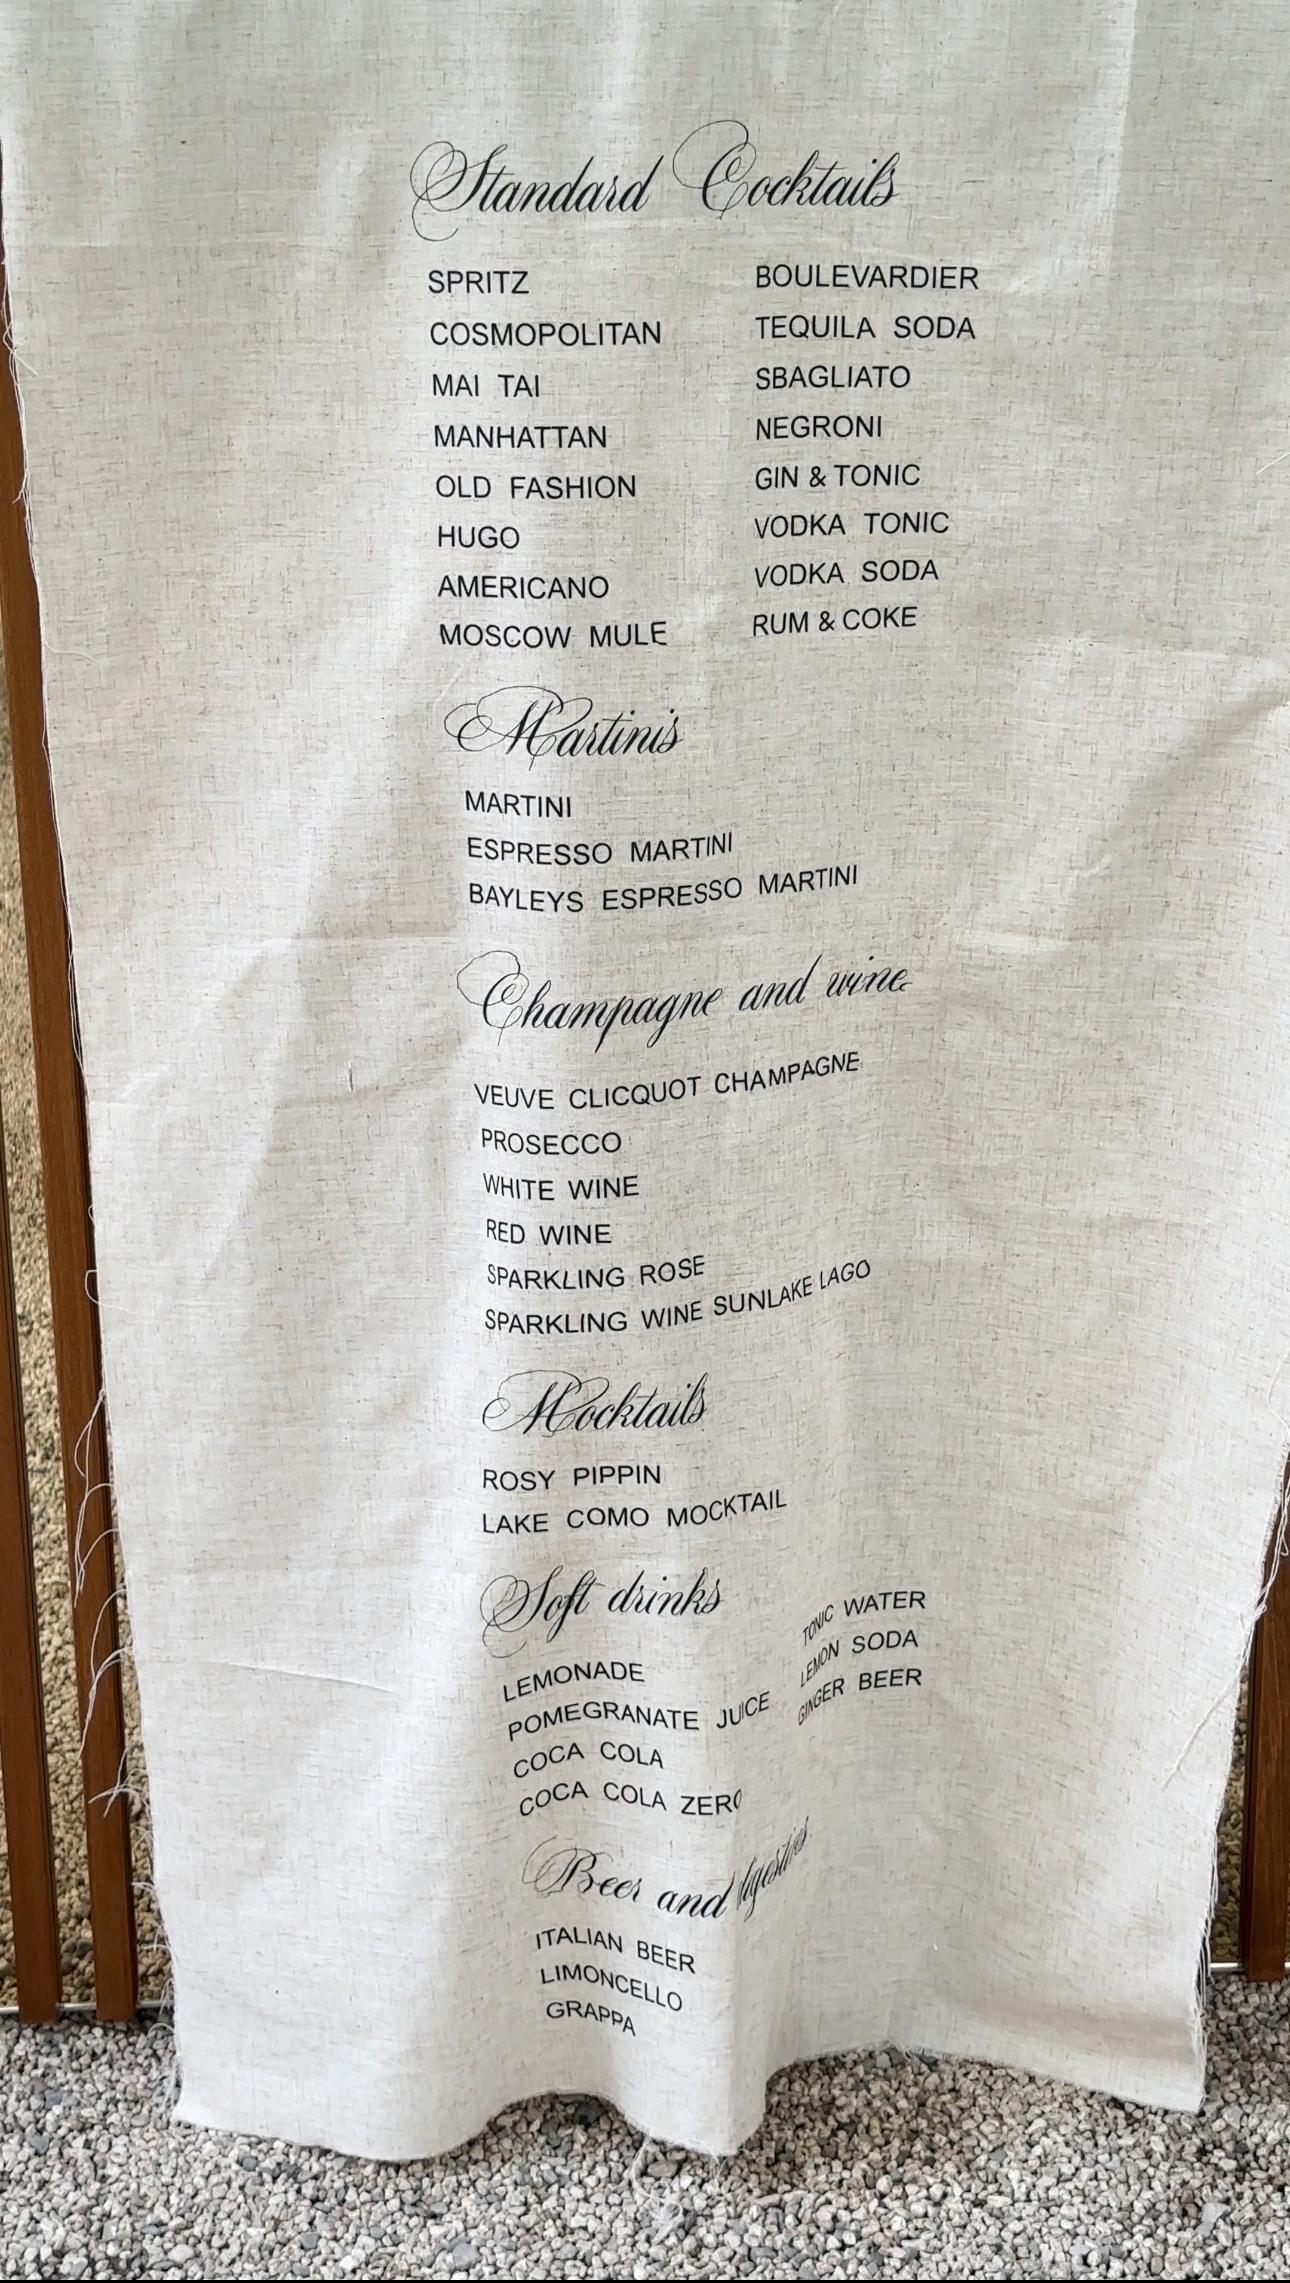 Standard Cocktails
SPRITZ
COSMOPOLITAN
MAI TAI
MANHATTAN
OLD FASHION
HUGO
AMERICANO
MOSCOW MULE
BOULEVARDIER
TEQUILA SODA
SBAGLIATO
NEGRONI
GIN & TONIC
VODKA TONIC
VODKA SODA
RUM & COKE
Martinis
MARTINI
ESPRESSO MARTINI
BAYLEYS ESPRESSO MARTINI
Champagne and wine
VEUVE CLICQUOT CHAMPAGNE
PROSECCO
WHITE WINE
RED WINE
SPARKLING ROSE
SPARKLING WINE SUNLAKE LAGO
Mocktails
ROSY PIPPIN
LAKE COMO MOCKTAIL
Soft drinks
LEMONADE
POMEGRANATE JUICE
COCA COLA
COCA COLA ZERO
TONIC WATER
LEMON SODA
GINGER BEER
Beer and digestives
ITALIAN BEER
LIMONCELLO
GRAPPA